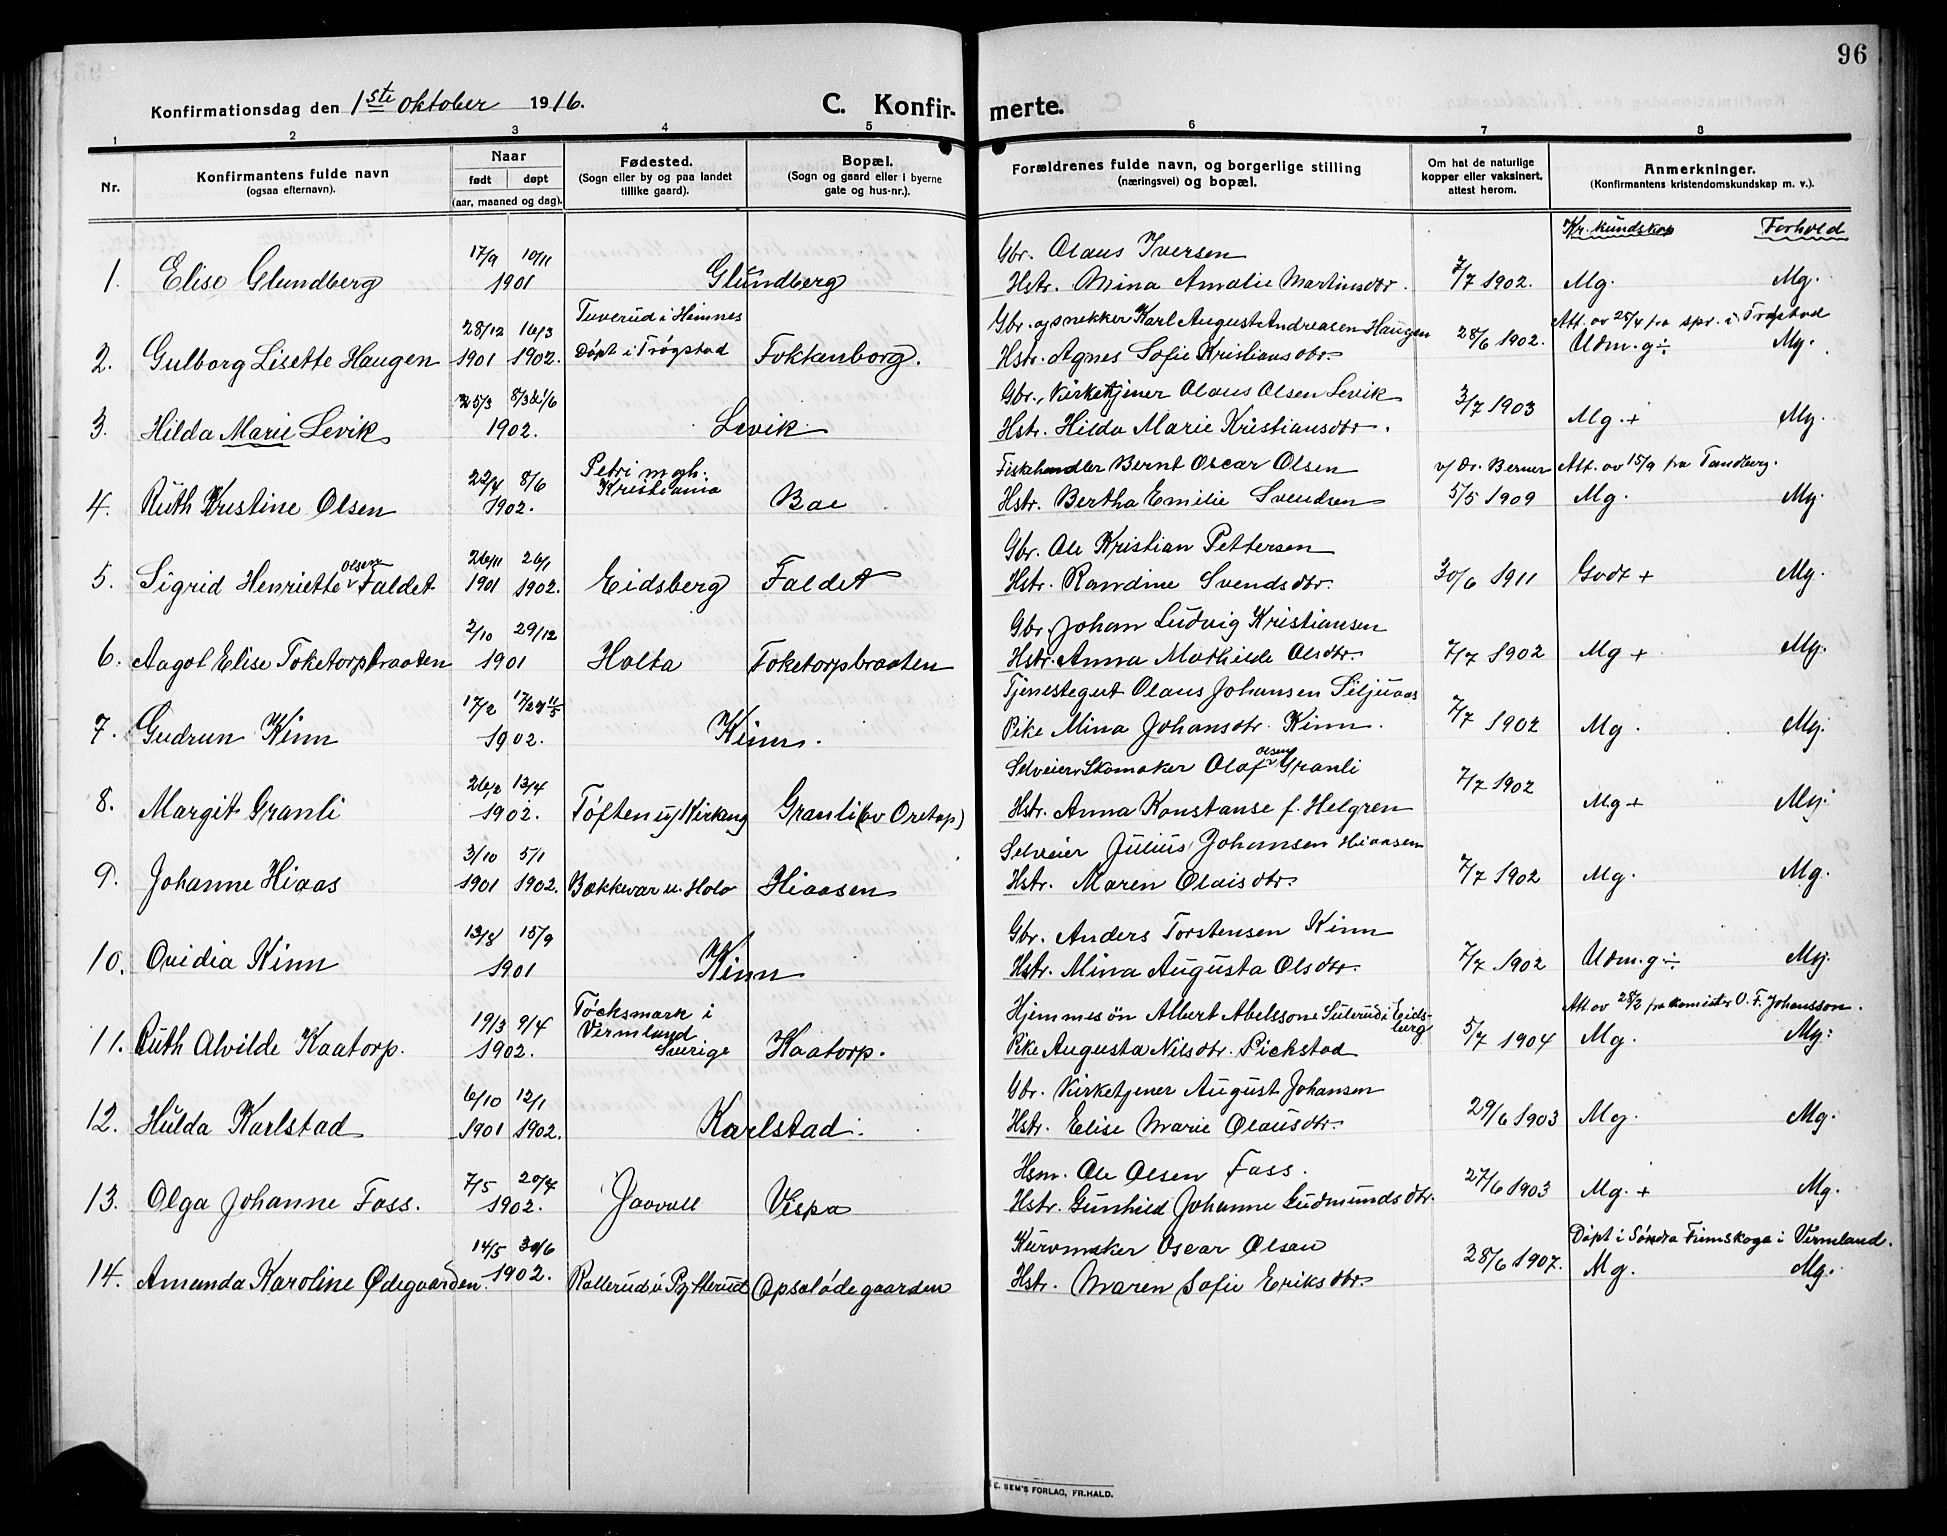 96
Konfirmationsdag den 1ste oktober 1916.
C. Konfir- merte.
1 2 3 4 5 6 7 8
Nr.
Konfirmantens fulde navn
(ogsaa efternavn).
Naar
født døpt
(aar, maaned og dag).
Fødested.
(Sogn eller by og paa landet
tillike gaard).
Bopæl.
(Sogn og gaard eller i byerne
gate og hus-nr.).
Forældrenes fulde navn, og borgerlige stilling
(næringsvei) og bopæl.
Om hat de naturlige
kopper eller vaksinert,
attest herom.
Anmerkninger.
(Konfirmantens kristendomskundskap m. v.).
Kr. kundskap Forhold
17/9 10/11 Gbr. Olaus Iversen
1. Elise Glundberg 1901 Glundberg Hstr. Mina Amalie Martinsdtr. 7/7 1902. Mg. Mg.
28/12 16/3 Tuverud i Hemnes Gbr. og snekker Karl August Andreasen Haugen Att. av 25/4 fra spr. i Trøgstad
2. Gulborg Lisette Haugen 1901 1902. Døpt i Trøgstad Toktanborg. Hstr. Agnes Sofie Kristiansdtr. 28/6 1902. Udm. g÷ Mg.
25/3 8/3 Gbr., Kirketjener Olaus Olsen Levik
3. Hilda Marie Levik 1902. Levik Hstr. Hilda Marie Kristiansdtr. 3/7 1903 Mg. + Mg.
22/4 8/6 Petri mgh. Fiskehandler Bernt Oscar Olsen v/ Dr. Berner Att. av 15/9 fra Tandberg.
4. Ruth Kristine Olsen 1902. Kristiania Bae Hstr. Bertha Emilie Svendsen 5/5 1909 Mg. Mg.
26/11 26/1 Gbr. Ole Kristian Pettersen
5. Sigrid Henriette Olsen Faldet 1901 1902. Eidsberg Faldet Hstr. Randine Svendsdtr. 30/6 1911 Godt + Mg.
2/10 29/12 Gbr. Johan Ludvig Kristiansen
6. Aagot Elise Toketorpbraaten 1901 Holta Toketorpbraaten Hstr. Anna Mathilde Olsdtr. 7/7 1902 Mg + Mg.
17/2 Tjenestegut Olaus Johansen Siljuaas
7. Gudrun Kinn 1902. Kinn. Pike Mina Johansdtr. Kinn. 7/7 1902 Mg. Mg.
26/2 13/4 Selveier, Skomaker Olaf Olsen Granli
8. Margit Granli 1902. Tøften u/ Kirkeng Granli (av Oretop) Hstr. Anna Konstanse f. Helgren 7/7 1902 Mg + Mg.
3/10 5/1 Selveier Julius Johansen Hiaasen
9. Johanne Hiaas 1901 1902. Bækkevar u. Holo Hiaasen Hstr. Maren Olaisdtr. 7/7 1902 Mg. Mg.
13/8 15/9 Gbr. Anders Torstensen Kinn
10. Ovidia Kinn 1901 Kinn Hstr. Mina Augusta Olsdtr. 7/7 1902 Udm. g÷ Mg.
19/3 9/4 Töcksmark i Vermland Sverige Hjemmesøn Albert Abelssone Suterud i Eidsberg Att av 28/2 fra komister O. F. Johansson.
11. Ruth Alvilde Kaatorp. 1902. Kaatorp. Pike Augusta Nilsdtr. Pickstad 5/7 1904 Mg. Mg.
6/10 12/1 Gbr. Kirketjener August Johansen
12. Hulda Karlstad 1901 1902. Karlstad. Hstr. Elise Marie Olausdtr. 29/6 1903 Mg. Mg.
7/5 20/4 Hsm. Ole Olsen Fass.
13. Olga Johanne Fass. 1902. Jaavall Vespa Hstr. Gunhild Johanne Gudmundsdtr. 27/6 1903 Mg. + Mg.
14/5 30/6 Kurvmaker Oscar Olsen Døpt i Søndra Finnskoga i Vermland.
14. Amanda Karoline Ødegaarden 1902. Rallerud u Pytterud Opsalødegaarden Hstr. Maren Sofie Eriksdtr. 28/6 1907. Mg. Mg.
E. SEM'S FORLAG, FR.HALD.